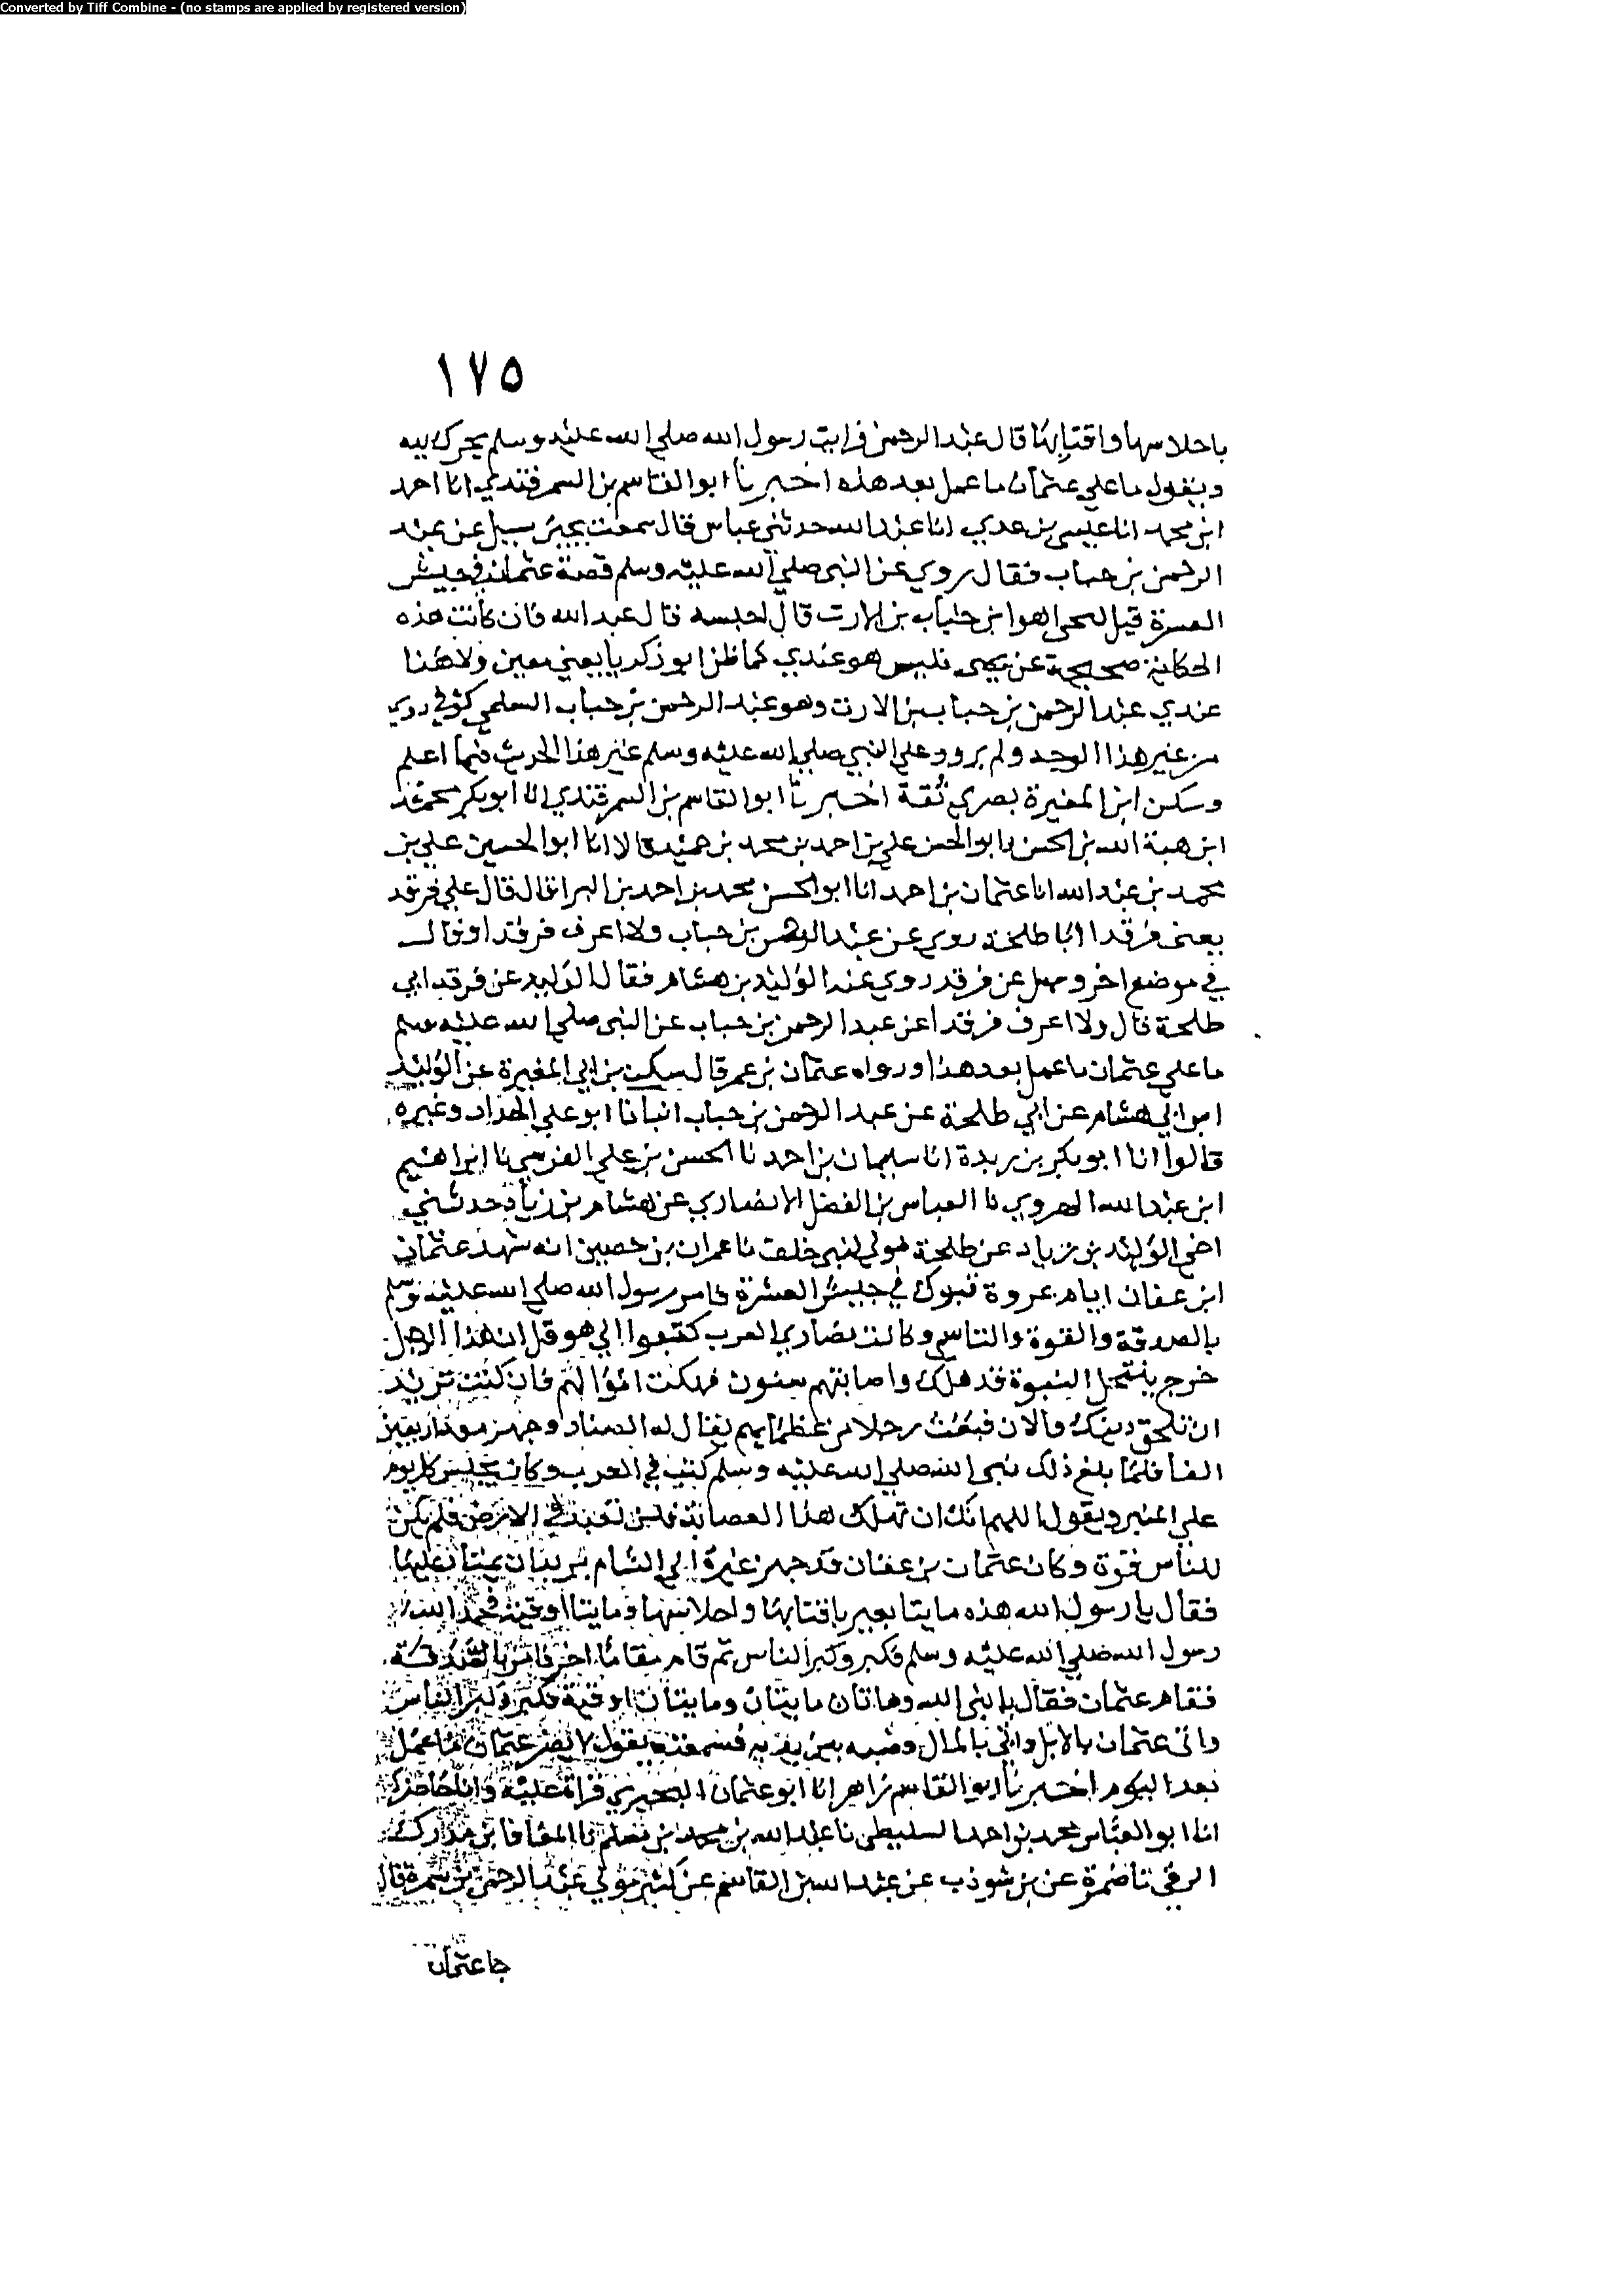 Converted by Tiff Combine - (no stamps are applied by registered version)
١٧٥
باحلاسها واقتابها قال عبد الرحمن فرايت رسول الله صلى الله عليه وسلم يحرك يديه
ويقول ما على عثمان ما عمل بعد هذه اخبرنا ابو القاسم بن السمرقندي انا احمد
ابن محمد انا عيسى بن عدي انا عبد الله حدثني عباس قال سمعت يحيى سيل عن عبد
الرحمن بن حباب فقال روي عن النبي صلى الله عليه وسلم قصة عثمان في جيش
العسرة قيل ليحيى اهو ابن خباب بن الارت قال احسبه قال عبد الله فان كانت هذه
الحكاية صحيحة عن يحيى فليس هو عندي كما ظن ابو زكريا يعني معين ولا هذا
عندي عبد الرحمن بن حباب بن الارت وهو عبد الرحمن بن حباب السلمي كوفي روي
من غير هذا الوجه ولم يروو على النبي صلى الله عليه وسلم غير هذا الحديث فيما اعلم
وسكن ابن المغيرة بصري ثقة اخبرنا ابو القاسم بن السمرقندي انا ابو بكر محمد
ابن هبة الله بن الحسن نا بو الحسن علي بن احمد بن محمد بن حميد قالا انا ابو الحسين علي بن
محمد بن عبد الله انا عثمان بن احمد انا ابو الحسن محمد بن احمد بن البرا قال قال علي فرقد
يعني فرقدا ابا طلحة روى عن عبد الرحمن بن حباب ولا اعرف فرقدا وقال
في موضع اخر وسيل عن فرقد روي عنه الوليد بن هشام فقال الوليد عن فرقد ابي
طلحة قال ولا اعرف فرقدا عن عبد الرحمن بن حباب عن النبي صلى الله عليه وسلم
ما على عثمان ما عمل بعد هذا ورواه عثمان بن عمر قال سكن بن ابي المغيرة عن الوليد
ابن ابي هشام عن ابي طلحة عن عبد الرحمن بن حباب انبانا ابو علي الحداد وغيره
قالوا انا ابو بكر بن ريدة انا سليمان بن احمد نا الحسن بن علي الفرسي نا ابراهيم
ابن عبد الله الهروي نا العباس بن الفضل الانصاري عن هشام بن زياد حدثني
اخي الوليد بن زياد عن طلحة مولى لبني خلف نا عمران بن حصين انه شهد عثمان
ابن عفان ايام عروة تبوك في جيش العسرة فامر رسول الله صلى الله عليه وسلم
بالصدقة والقوة والتاسي وكانت نصارى العرب كتبوا الى هوقل ان هذا الرجل
خرج ينتحل النبوة قد هلك واصابتهم سنون فهلكت اموالهم فان كنت تريد
ان تلحق دينك والان فبعث رجلا من عظمايهم يقال له الصناد وجهز معه اربعين
الفا فلما بلغ ذلك نبي الله صلى الله عليه وسلم كتب في العرب وكان يجلس كل يوم
على المنبر ويقول اللهم انك ان تهلك هذا العصابة فلن تعبد في الارض فلم يكن
للناس قوة وكان عثمان بن عفان قد جهز عيره الى الشام يريد ان يمتار عليها
فقال يا رسول الله هذه مايتا بعير باقتابها واحلاسها ومايتا اوقية فحمد الله
رسول الله صلى الله عليه وسلم فكبر وكبر الناس ثم قام مقاما اخر فامر بالصدقة
فقام عثمان فقال يا نبي الله وهاتان مايتان ومايتان اوقية فكبر وكبر الناس
واتى عثمان بالابل واتى بالمال وصبه بين يديه فسمعته يقول لا يضر عثمان ما عمل
بعد اليوم اخبرنا ابو القاسم زاهر انا ابو عثمان البحيري قراة عليه وانا حاضر
انا ابو العباس محمد بن احمد السليطي نا عبد الله بن محمد بن مسلم نا المعافا بن مدرك
الرقي نا ضمرة عن بن شوذب عن عبد الله بن القاسم عن كثير مولى عبد الرحمن بن سمرة قال
جا عثمان